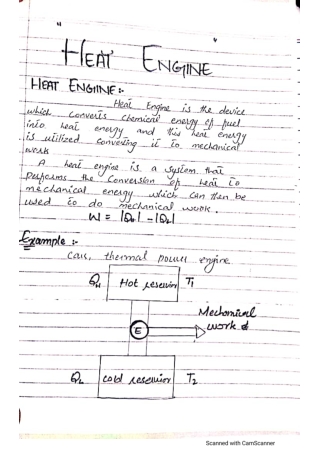 HEAT ENGINE
HEAT ENGINE:-
Heat Engine is the device
which converts chemical energy of fuel
into heat energy and this heat energy
is utilized converting it to mechanical
work
A heat engine is a system that
performs the conversion of heat to
mechanical energy which can then be
used to do mechanical work.
W = |Qₕ| - |Qₗ|
Example :-
Car, thermal power engine
Qₕ Hot reservior T₁
Mechanical
E work
Qₗ cold reservior T₂
Scanned with CamScanner